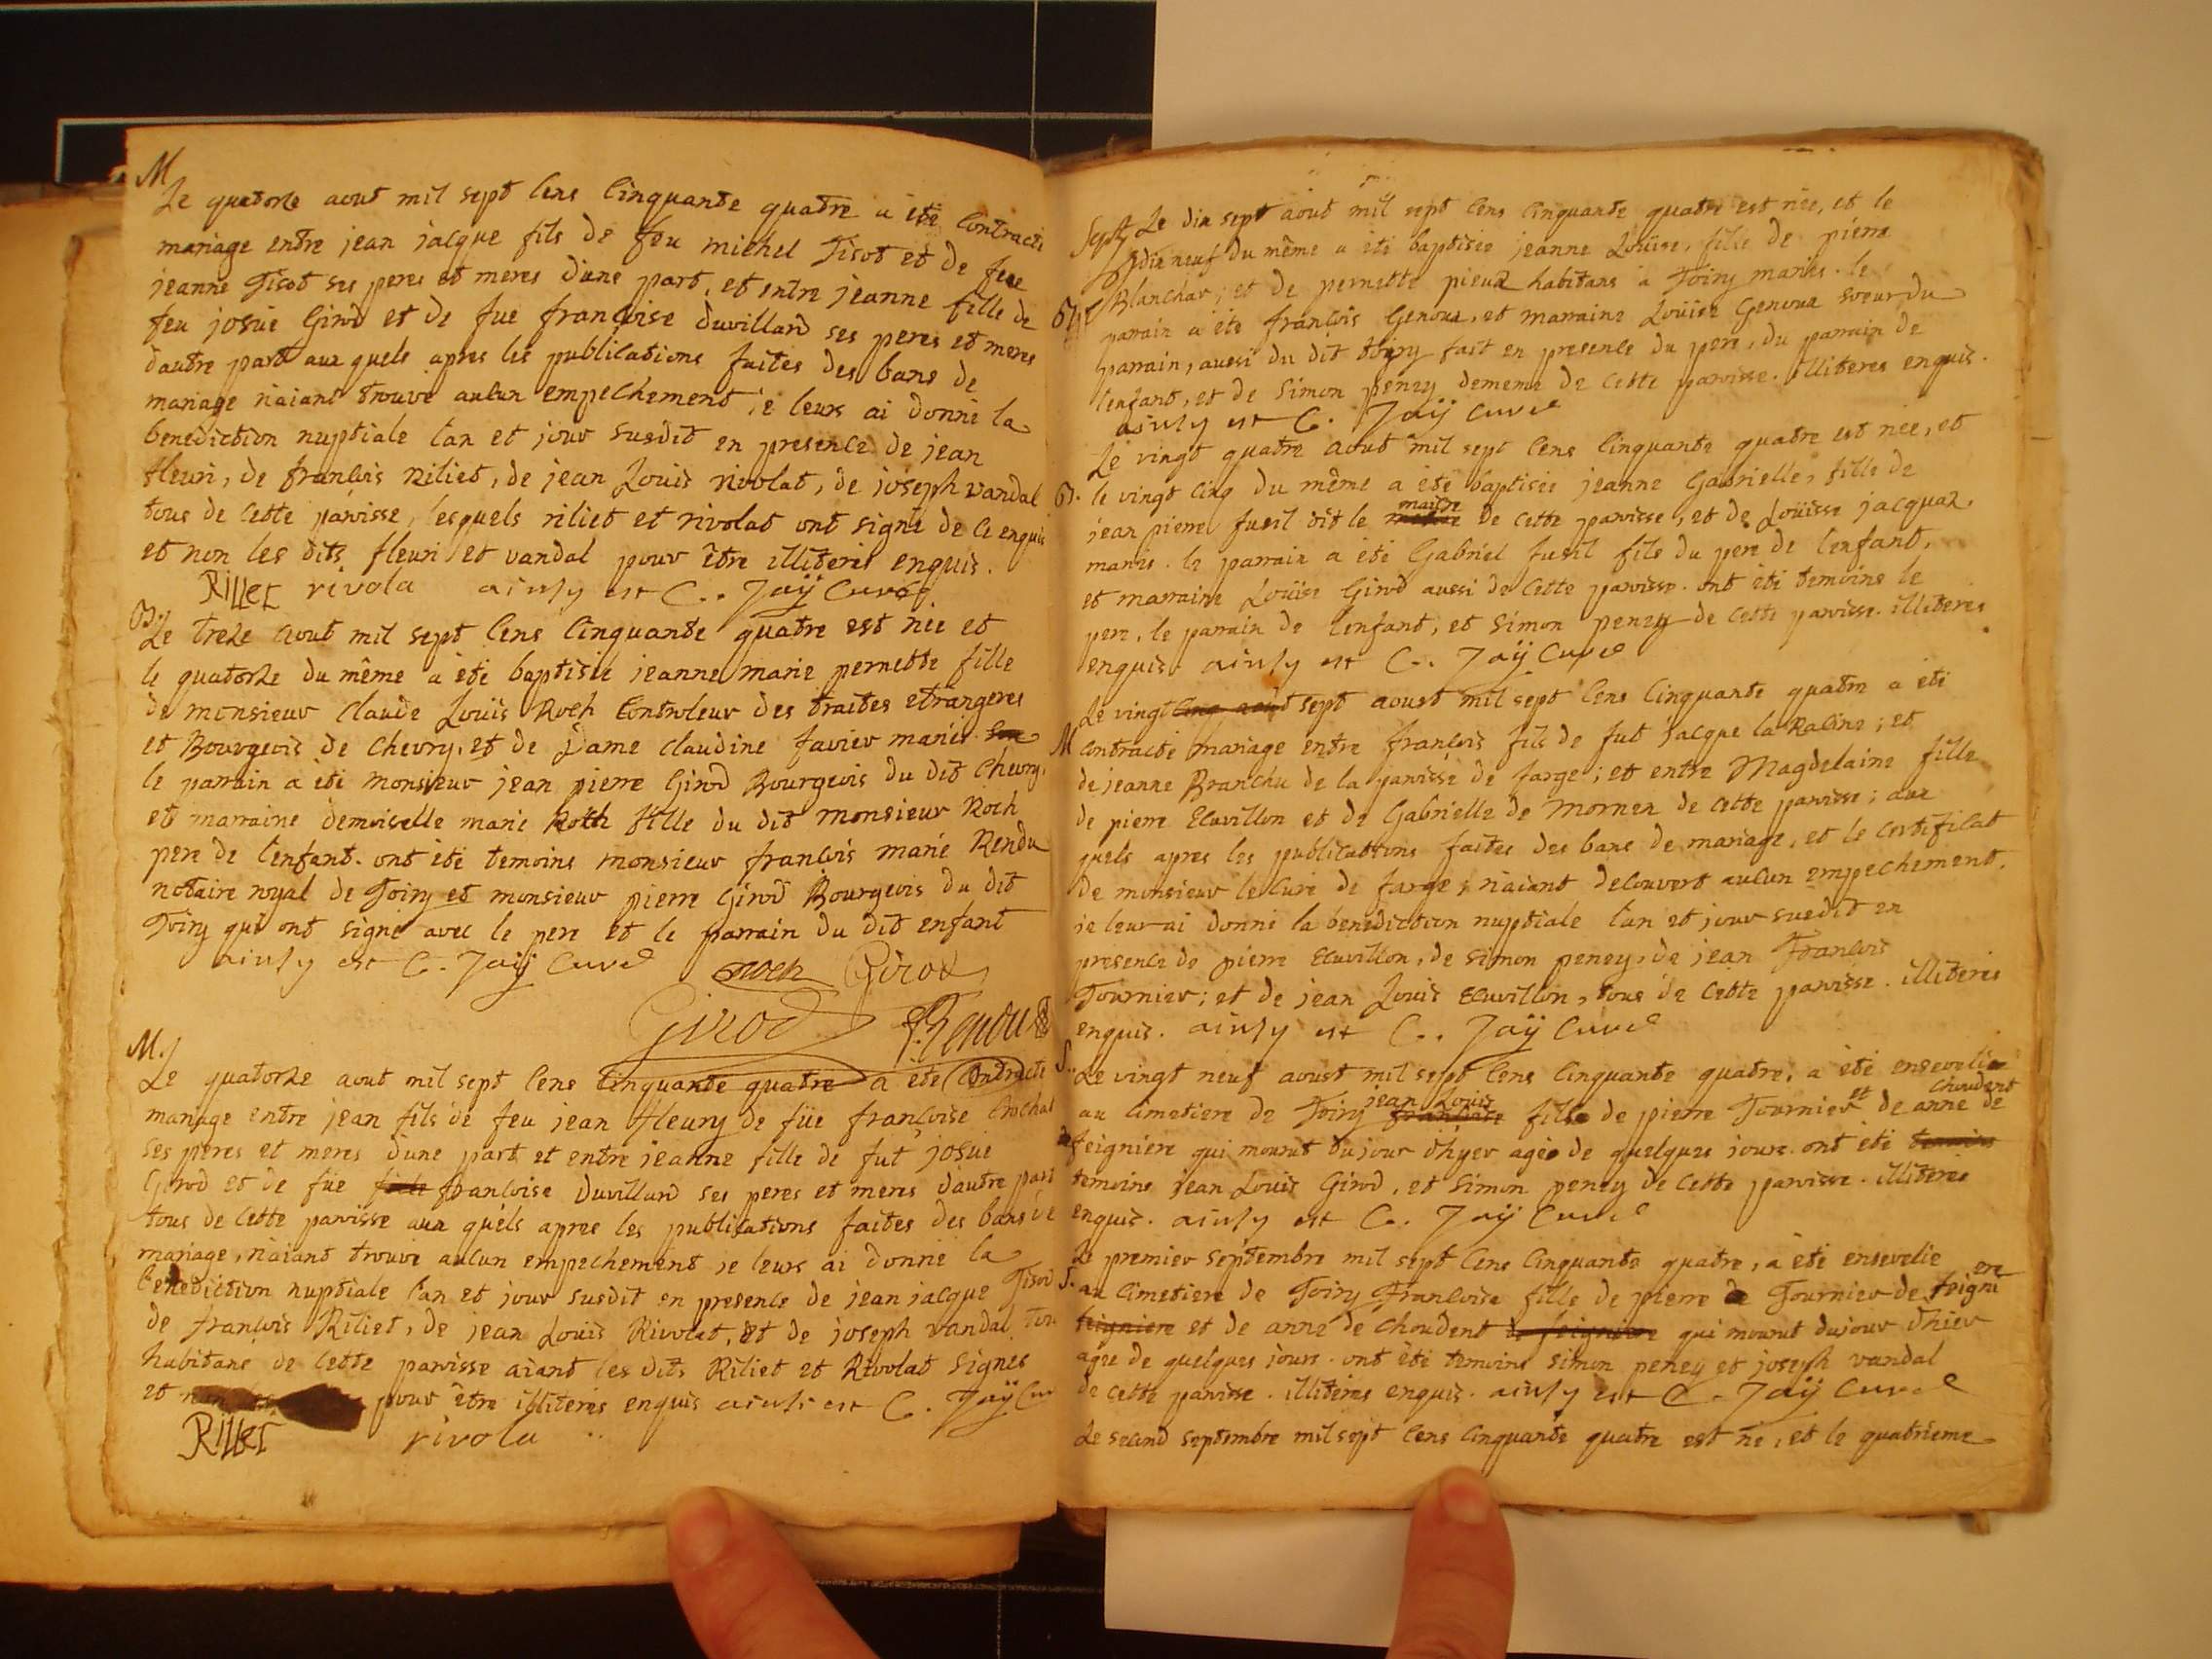 M
Le quatorze aout mil sept cens cinquante quatre a eté contracté
mariage entre jean jacque fils de feu michel Tisot et de feue
jeanne Tisot ses peres et meres d'une part, et entre jeanne fille de
feu josué Girod et de fue françoise duvillard ses peres et meres
dautre part aux quels apres les publications faites des bans de
mariage n'aiant trouvé aucun empechement je leurs ai donné la
benediction nuptiale l'an et jour susdit en presence de jean
fleuri, de françois Riliet, de jean Louis rivolat, de joseph vandal
tous de cette paroisse, lesquels riliet et rivolat ont signé de ce enquis
et non les dits fleuri et vandal pour être illiterés enquis.
Rillet rivola ainsy est C. Jaÿ Curé
B.
Le treze aout mil sept cens cinquante quatre est née et
le quatorze du même a eté baptisée jeanne marie pernette fille
de monsieur claude Loüis Roch Controleur des traites etrangeres
et Bourgeois de chevry, et de Dame claudine favier mariés
le parrain a eté monsieur jean pierre Girod Bourgeois du dit chevry,
et marraine demoiselle marie Roch fille du dit monsieur Roch
pere de l'enfant. ont eté temoins monsieur françois marie Rendu
notaire royal de Toiry et monsieur pierre Girod Bourgeois du dit
Toiry qui ont signé avec le pere et le parrain du dit enfant
ainsy est C. Jaÿ Curé roch Girod
Girod f. Rendu
M.
Le quatorze aout mil sept cens cinquante quatre a eté Contracté
mariage entre jean fils de feu jean fleury de füe françoise Crochat
ses peres et meres d'une part et entre jeanne fille de fut josué
Girod et de füe françoise Duvillard ses peres et meres d'autre part
tous de cette paroisse aux quels apres les publications faites des bans de
mariage, n'aiant trouvé aucun empechement je leurs ai donné la
benediction nuptiale l'an et jour susdit en presence de jean jacque Tisot
de françois Riliet, de jean Louis Rivolat, et de joseph vandal tous
habitans de cette paroisse aiant les dits Riliet et Rivolat signés
et non les pour être illiterés enquis ainsi est C. Jaÿ Cur
Rillet rivola
Le dix sept aout mil sept cens cinquante quatre est née, et le
dix neuf du même a eté baptisée jeanne Loüise, fille de pierre
Blanchar, et de pernette pieux habitans a Toiry mariés. le
B
parrain a eté françois Genoux, et marraine Loüise Genoux soeur du
parrain, aussi du dit toiry fait en presence du pere, du parrain de
l'enfant, et de Simon peney demême de cette paroisse. illiteres enquis.
ainsy est C. Jaÿ Curé
Le vingt quatre aout mil sept cens cinquante quatre est née, et
B. le vingt cinq du même a eté baptisée jeanne Gabrielle, fille de
maitre
jean pierre fusil dit le de cette paroisse, et de Loüisse jacquar.
mariés. le parrain a eté Gabriel fusil fils du pere de l'enfant,
et marraine Loüise Girod aussi de cette paroisse. ont eté temoins le
pere, le parrain de l'enfant, et Simon peney de cette paroisse. illiteres
enquis. ainsy est C. Jaÿ Curé
Le vingt cinq aout sept aoust mil sept cens cinquante quatre a eté
M contracté mariage entre françois fils de fut jacque la Racine; et
de jeanne Branchu de la paroisse de farge; et entre Magdelaine fille
de pierre Ecuvillon et de Gabrielle de Mornex de cette paroisse; aux
quels apres les publications faites des bans de mariage, et le certificat
de monsieur le curé de farge, n'aiant decouvert aucun empechement.
je leur ai donné la benediction nuptiale l'an et jour susdit en
presence de pierre Ecuvillon, de simon peney, de jean François
Tournier; et de jean Louis Ecuvillon, tous de cette paroisse. illiterés
enquis. ainsy est C. Jaÿ Curé
S. Le vingt neuf aoust mil sept cens cinquante quatre, a eté enseveli
jean Louis et choudent
au cimetiere de Toiry françoise fils de pierre Tournier de anne de
feigniere qui mourut dujour d'hyer agé de quelques jours. ont eté temoins
temoins jean Louis Girod, et Simon peney de cette paroisse. illiterés
enquis. ainsy est C. Jaÿ Curé
Le premier septembre mil sept cens cinquante quatre, a eté ensevelie
S. au cimetiere de Toiry Françoise fille de pierre Tournier de feigni ere
feigniere et de anne de choudent de feigniere qui mourut dujour d'hier
agée de quelques jours. ont eté temoins simon peney et joseph vandal
de cette paroisse. illiterés enquis. ainsy est C. Jaÿ Curé
Le second septembre mil sept cens cinquante quatre est né, et le quatrieme